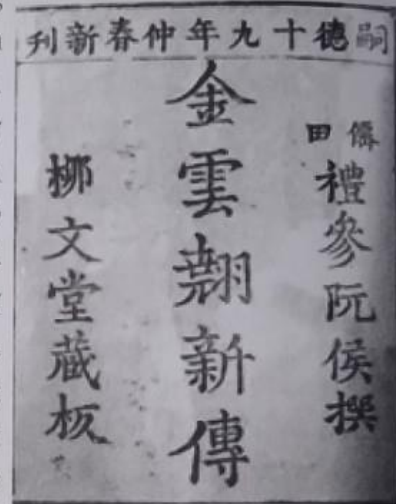 嗣德十九年仲春新刊
僊田
禮參阮侯撰
金雲翹新傳
柳文堂藏板